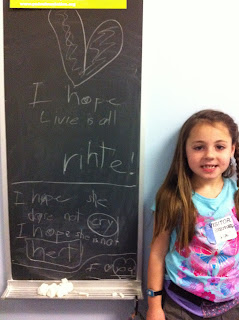 I hope
Livie is all
rihte!
I hope she
dose not cry
I hope she is not
hert
VISITOR